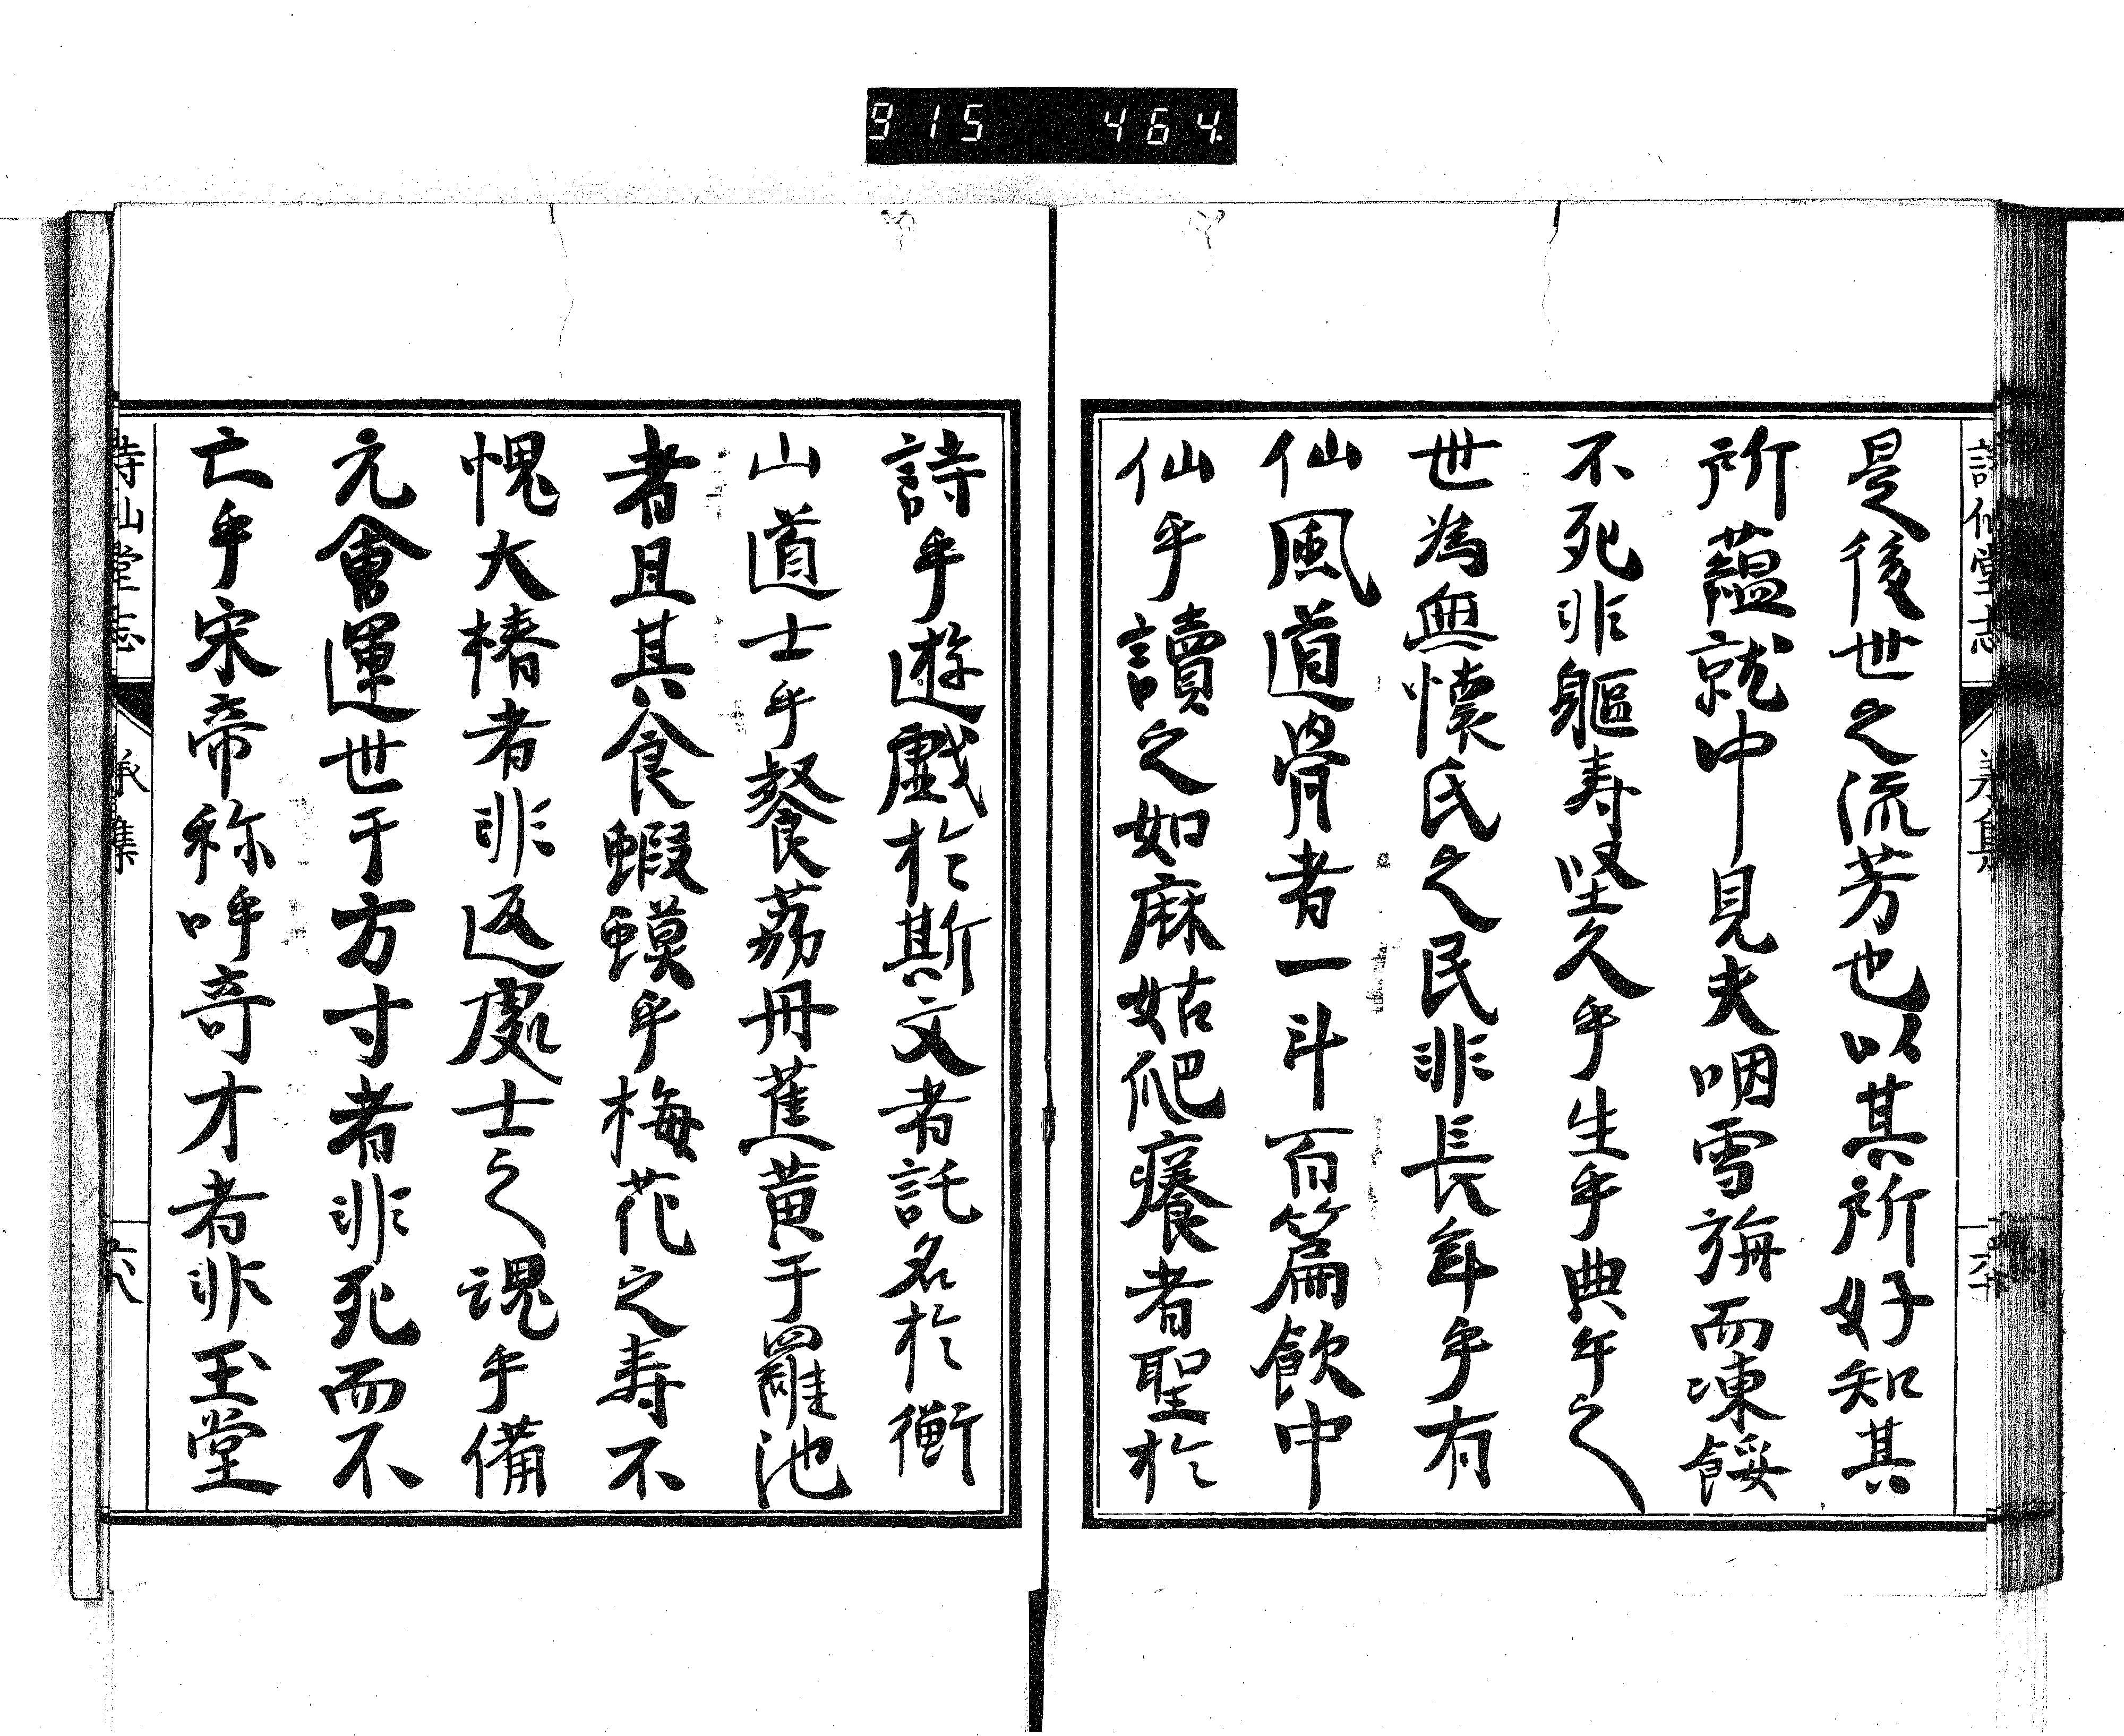 915 464
詩仙堂志
是後世之流芳也以其所好知其
所蘊就中見夫咽雪旃而凍餒
不死非軀寿堅久乎生乎典午之
世為無懐氏之民非長年乎有
仙風道骨者一斗百篇飲中
仙乎讀之如麻姑爬癢者聖於
詩乎遊戯於斯文者託名於衡
山道士乎餐荔丹蕉黄于羅池
者且其食蝦蟆乎梅花之寿不
愧大椿者非返處士之魂乎備
元會運世于方寸者非死而不
亡乎宋帝称呼奇才者非玉堂
詩仙堂志